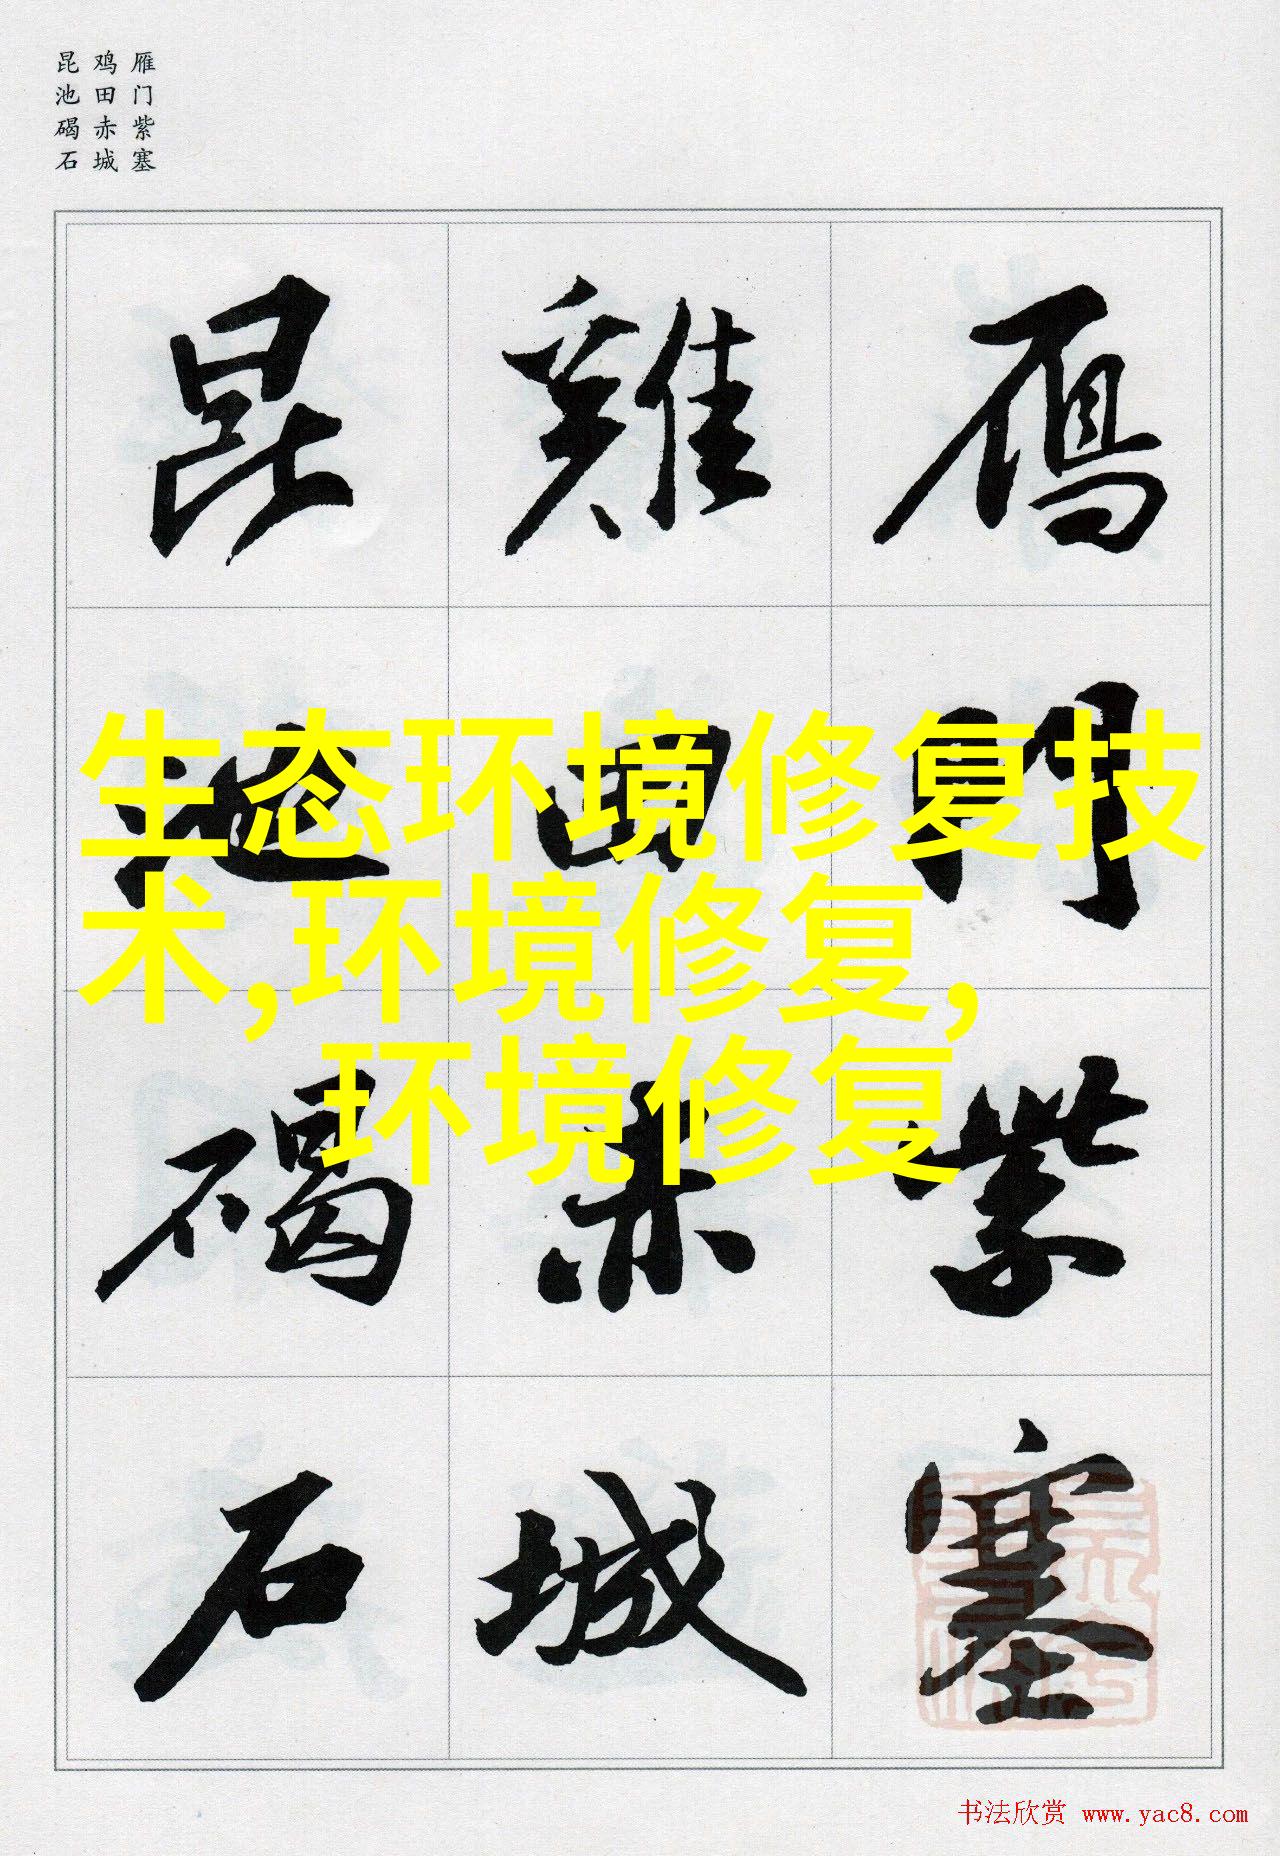 雁门紫塞
鸡田赤城
昆池碣石
鴈門紫塞
雞田赤城
昆池碣石
生态环境修复技
术,环境修复,
环境修复
书法欣赏 www.yac8.com